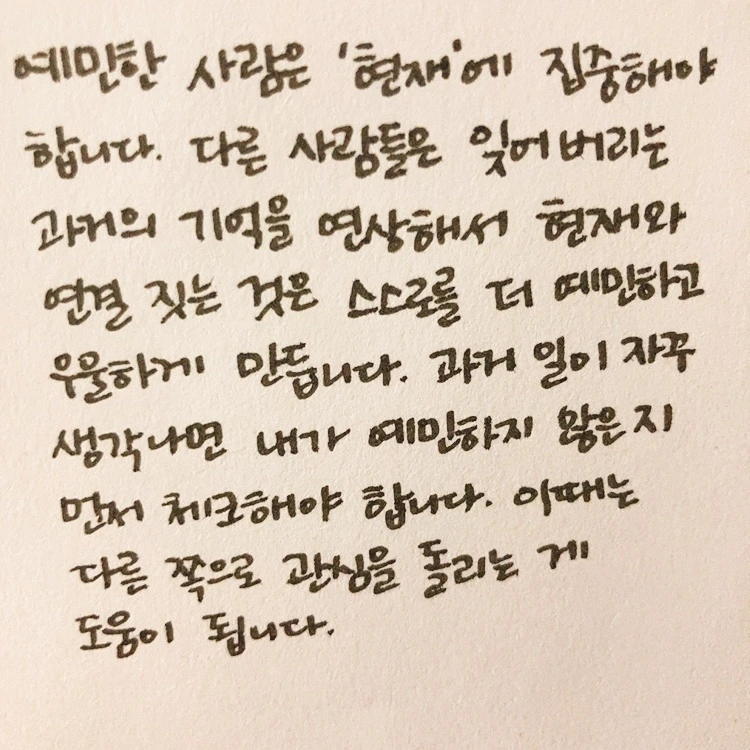 예민한 사람은 '현재'에 집중해야
합니다. 다른 사람들은 잊어버리는
과거의 기억을 연상해서 현재와
연결 짓는 것은 스스로를 더 예민하고
우울하게 만듭니다. 과거 일이 자꾸
생각나면 내가 예민하지 않은지
먼저 체크해야 합니다. 이때는
다른 쪽으로 관심을 돌리는 게
도움이 됩니다.